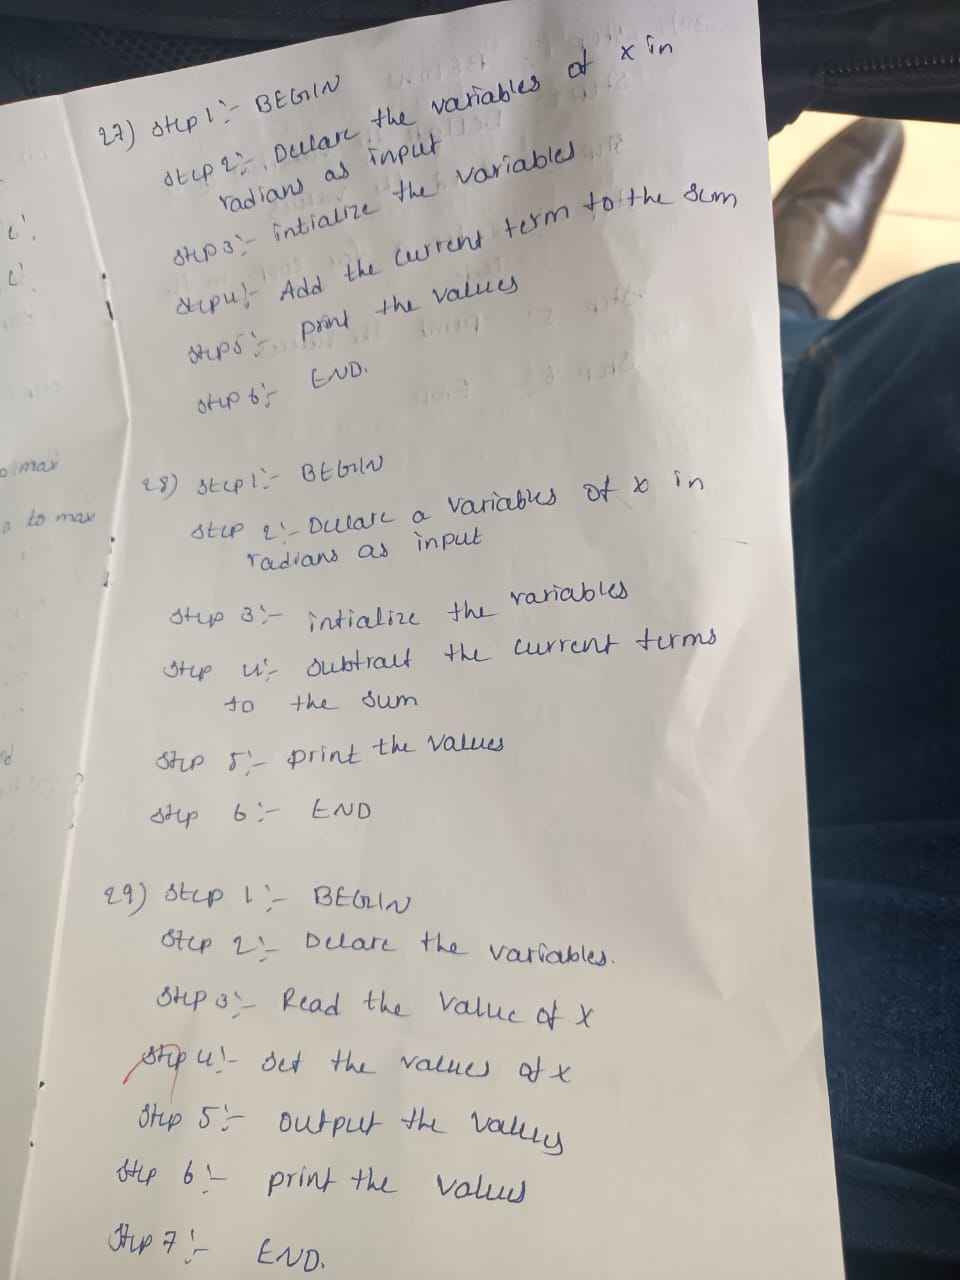 27) Step 1:- BEGIN
Step 2:- Declare the variables of x in
radians as input
Step 3:- intialize the variables
Step 4:- Add the current term to the sum
Step 5:- print the values
Step 6:- END.
o max
a to max
28) Step 1:- BEGIN
Step 2:- Declare a variables of x in
radians as input
Step 3:- intialize the variables
Step 4:- subtract the current terms
to the sum
Step 5:- print the values
Step 6:- END
29) Step 1:- BEGIN
Step 2:- Delare the variables.
Step 3:- Read the value of X
Step 4:- set the values of x
Step 5:- output the values
Step 6:- print the values
Step 7:- END.